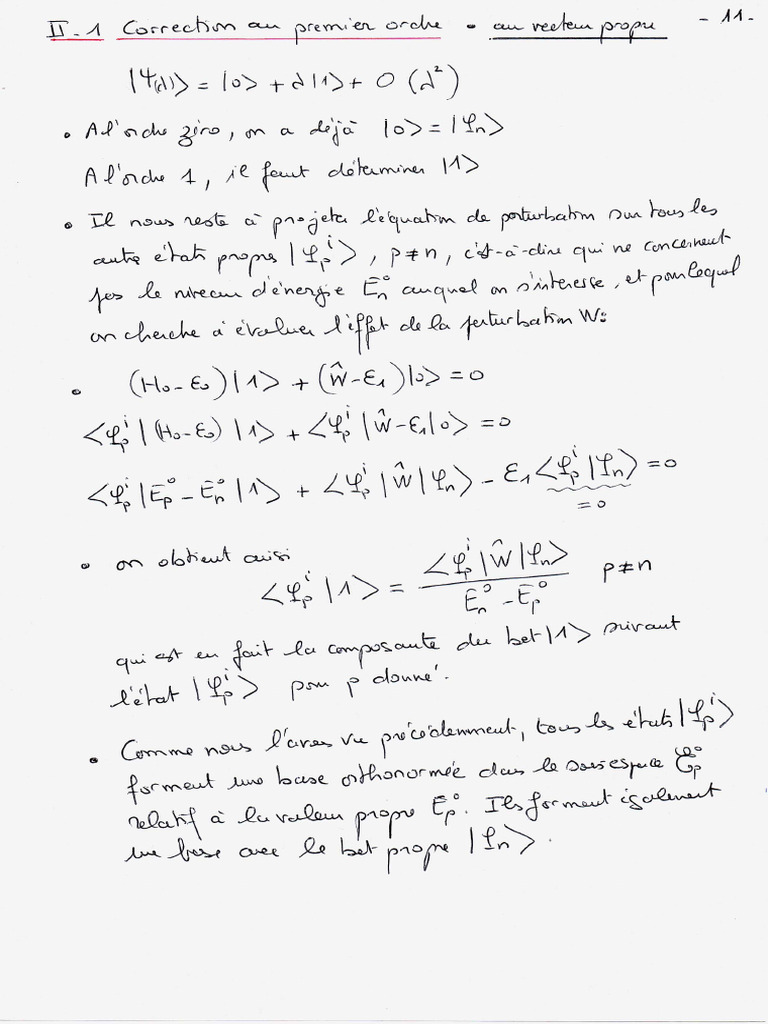 II-1 Correction au premier ordre • au vecteur propre - 11-
|Ψ(λ)> = |0> + λ|1> + O(λ²)
• A l'ordre zéro, on a déjà |0> = |φn>
A l'ordre 1, il faut déterminer |1>
• Il nous reste à projeter l'équation de perturbation sur tous les
autres états propres |φp^i>, p≠n, c'est-à-dire qui ne concernent
pas le niveau d'énergie En° auquel on s'intéresse, et pour lequel
on cherche à évaluer l'effet de la perturbation W:
• (H0-ε0)|1> + (Ŵ-ε1)|0> = 0
<φp^i|(H0-ε0)|1> + <φp^i|Ŵ-ε1|0> = 0
<φp^i|Ep°-En°|1> + <φp^i|Ŵ|φn> - ε1<φp^i|φn> = 0
= 0
• on obtient ainsi
<φp^i|1> = <φp^i|Ŵ|φn> / En°-Ep° p≠n
qui est en fait la composante du ket |1> suivant
l'état |φp^i> pour p donné.
• Comme nous l'avons vu précédemment, tous les états |φp^i>
forment une base orthonormée dans le sous espace Ɛp°
relatif à la valeur propre Ep°. Ils forment également
une base avec le ket propre |φn>.